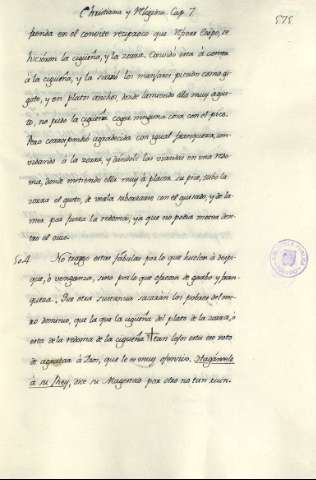 Christiana y Religiosa. Cap. 7.
575
penda en el convite reciproco que
hicieron la cigueña, y la zorra. Convidó esta á comer
á la cigueña, y la sacó los manjares picados como gi-
gote, y en platos anchos, donde lamiendo ella muy agus-
to, no pudo la cigueña coger ninguna cosa con el pico.
Pero correspondió agradecida con igual franqueza, con-
vidando á la zorra, y dandole las viandas en una redo-
ma, donde metiendo ella muy á placer su pico, tubo la
zorra el gusto, de verla saborearse con el guisado, y de la-
mer por fuera la redoma, ya que no podia meter den-
tro el
504 No traygo estas fabulas por lo que huelen á despi-
que, ó venganza, sino por lo que ofrecen de garbo y fran-
queza. Sea otra sustancia sacarán los pobres del
dominio, que la que la cigueña del plato de la zorra, ó
esta de la redoma de la cigueña tan lejos está ese voto
de agradar á Dios, que le es muy ofensivo. Haganosle
á su Rey, dice su Magestad por otro no tan